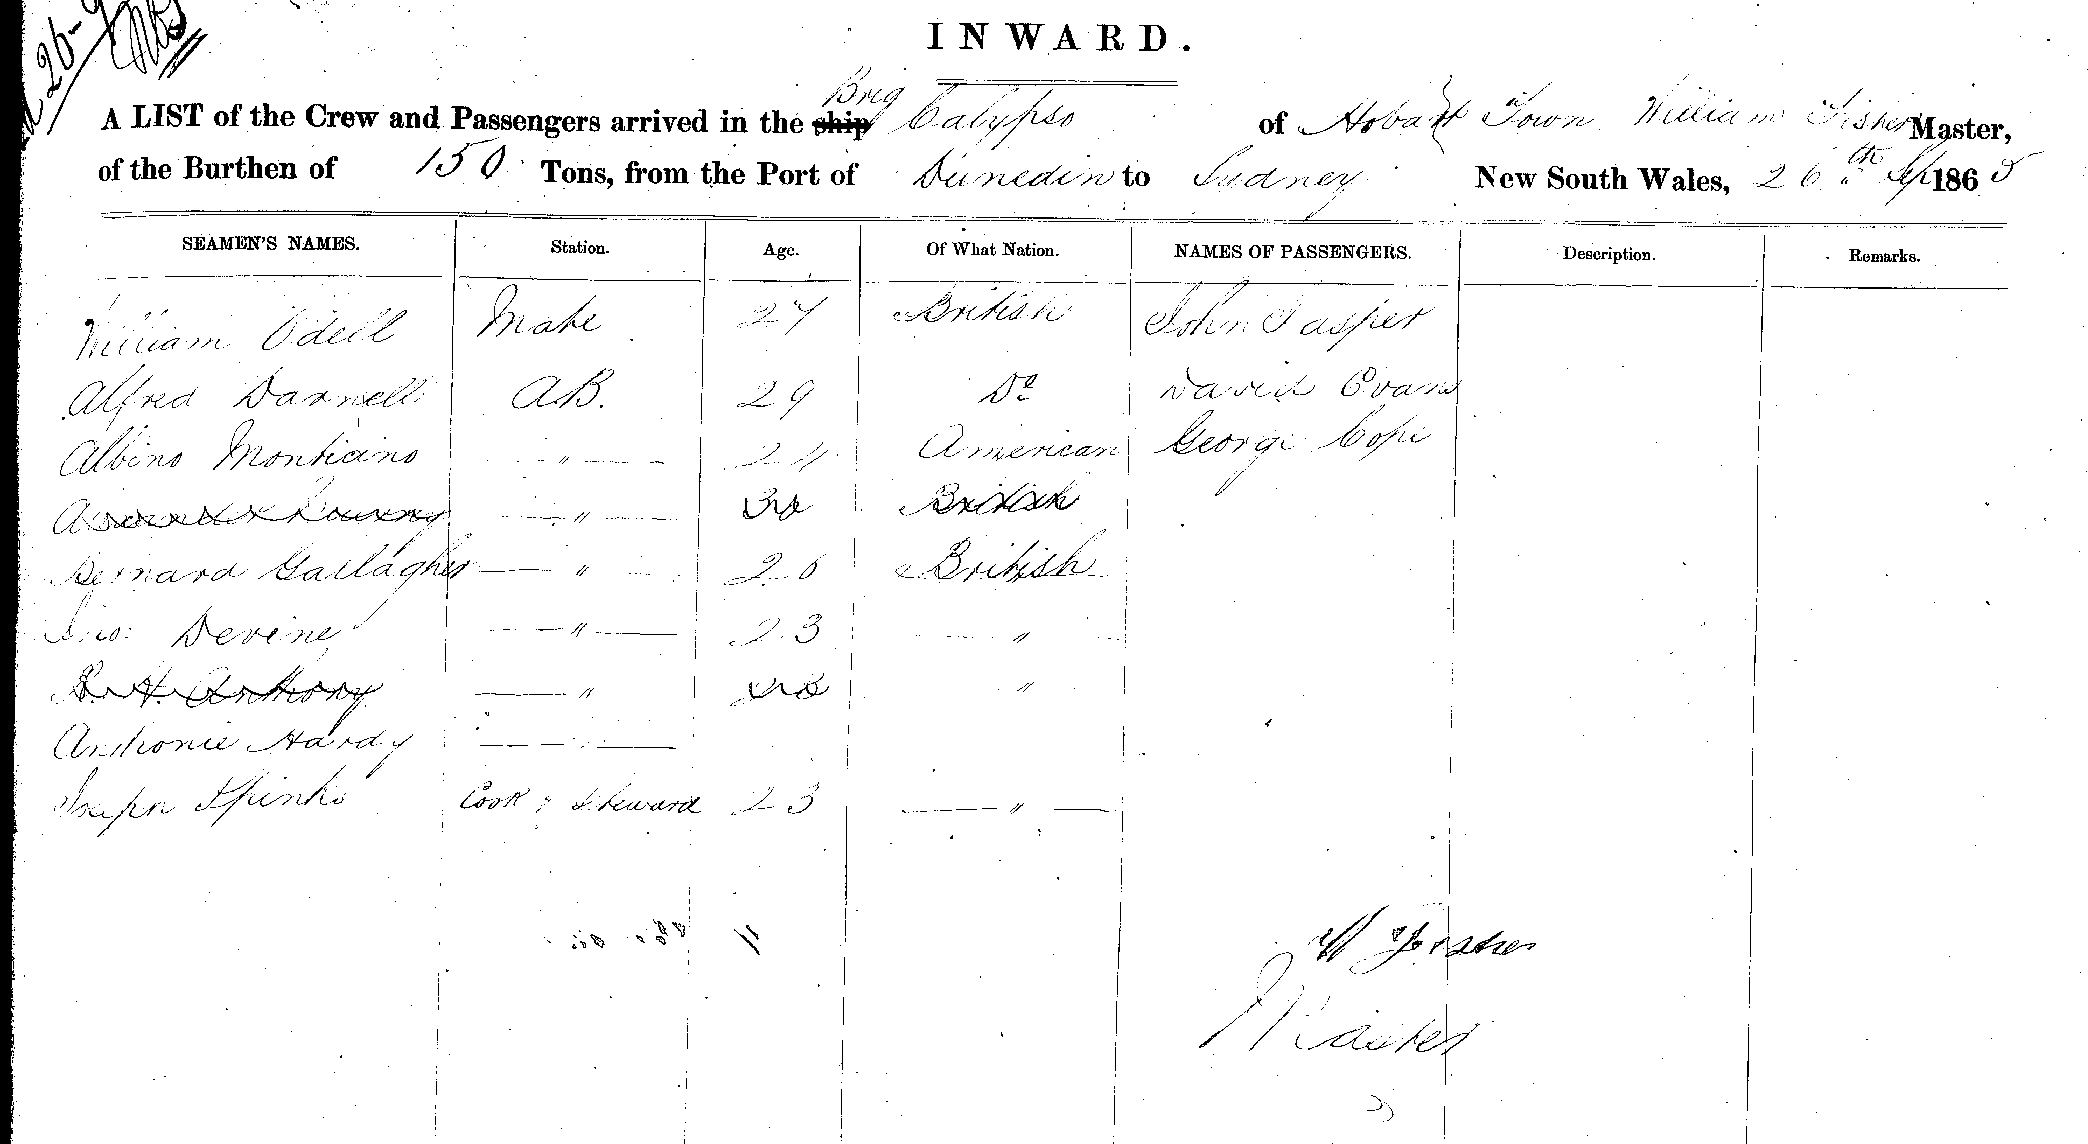 26-9
INWARD.
Brig
A LIST of the Crew and Passengers arrived in the ship Calypso of Hobart Town William Fisher Master,
of the Burthen of 150 Tons, from the Port of Dunedin to Sydney New South Wales, 26th Sep 1865
SEAMEN'S NAMES. Station. Age. Of What Nation. NAMES OF PASSENGERS. Description. Remarks.
William Odell Mate 27 British John Jasper
Alfred Darnell AB. 29 Do David Evans
Albino Monticino " 24 American George Cope
" British
Bernard Gallagher " 26 British
Jno: Devine " 23 "
H. Anthony " "
Anthonie Hardy
Joseph Spinks Cook & Steward 23 "
W Fisher
Master